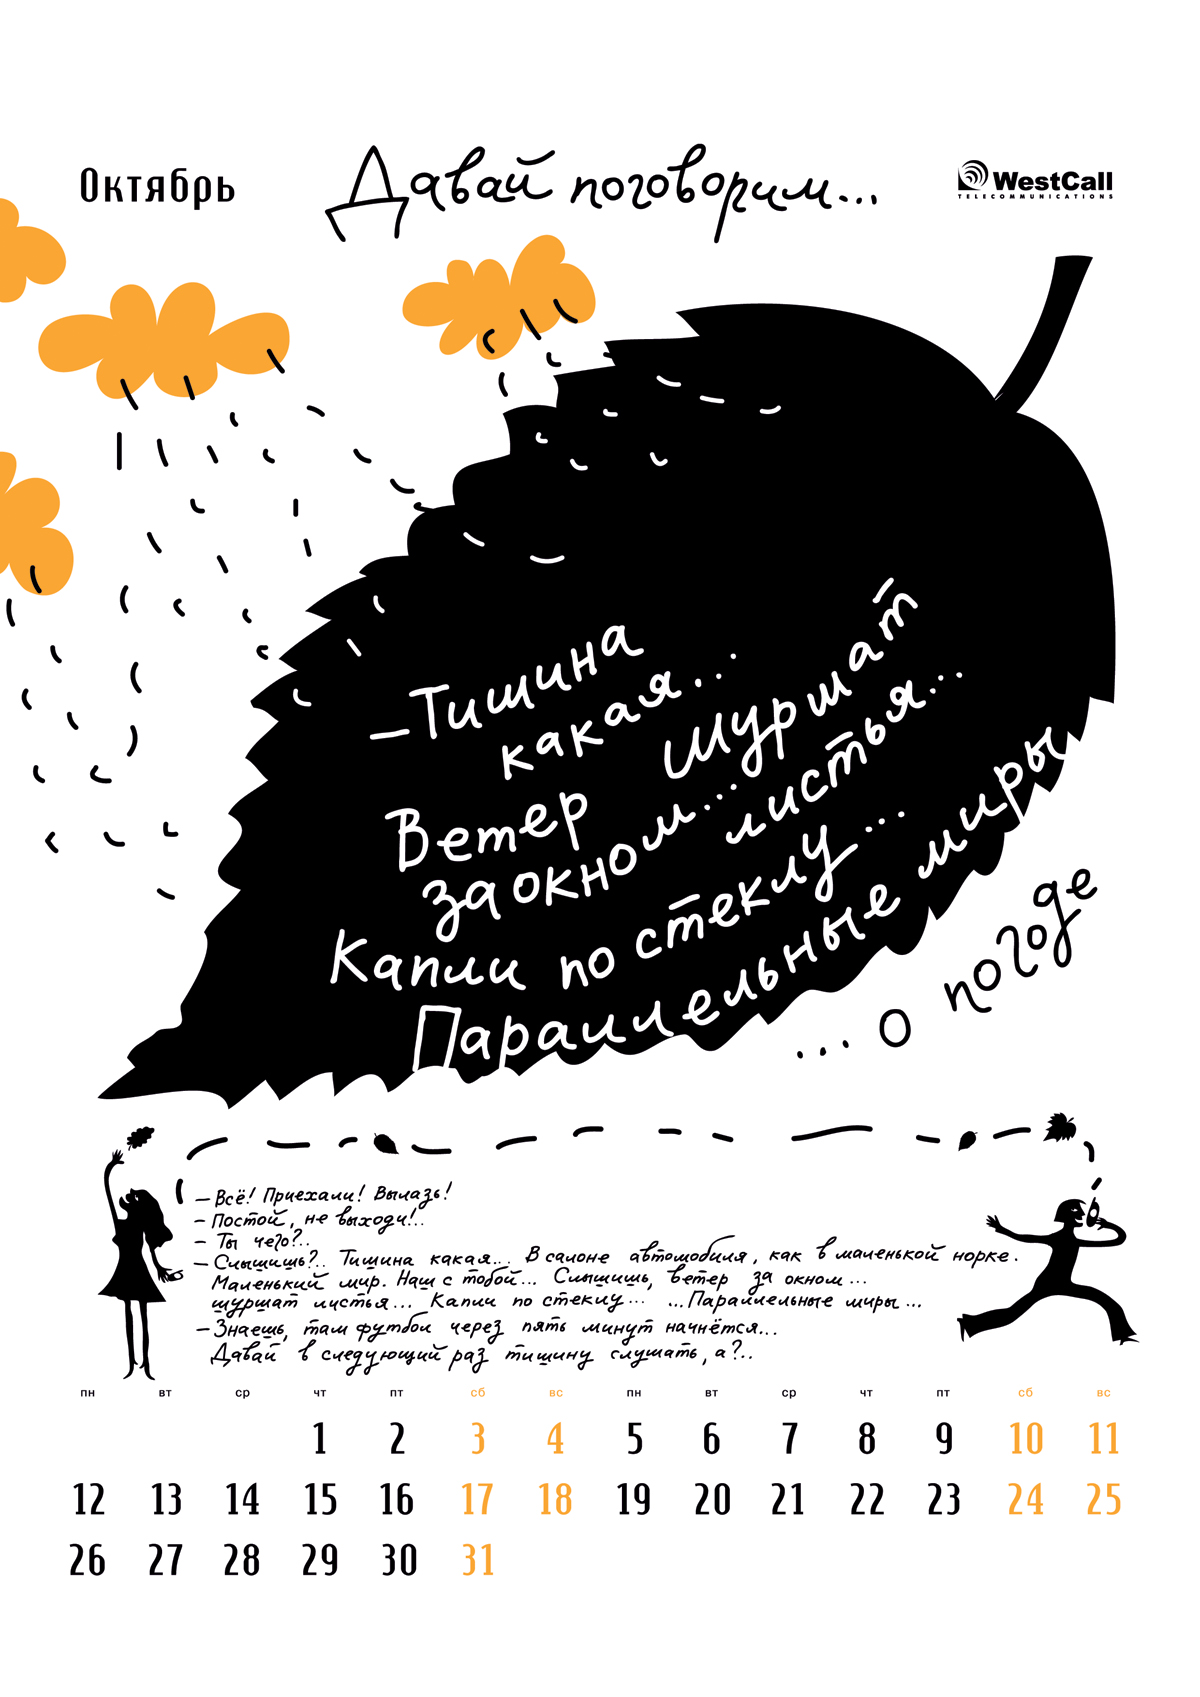 Октябрь
Давай поговорим...
WestCall
TELECOMMUNICATIONS
– Тишина
какая...
Ветер
за окном...
Шуршат
листья...
Капли по стеклу...
Параллельные миры
...о погоде
– Всё! Приехали! Вылазь!
– Постой, не выходи!..
– Ты чего?..
– Слышишь?.. Тишина какая... В салоне автомобиля, как в маленькой норке.
Маленький мир. Наш с тобой... Слышишь, ветер за окном...
шуршат листья... Капли по стеклу... ...Параллельные миры...
– Знаешь, там футбол через пять минут начнётся...
Давай в следующий раз тишину слушать, а?..
пн вт ср чт пт сб вс пн вт ср чт пт сб вс
1 2 3 4 5 6 7 8 9 10 11
12 13 14 15 16 17 18 19 20 21 22 23 24 25
26 27 28 29 30 31